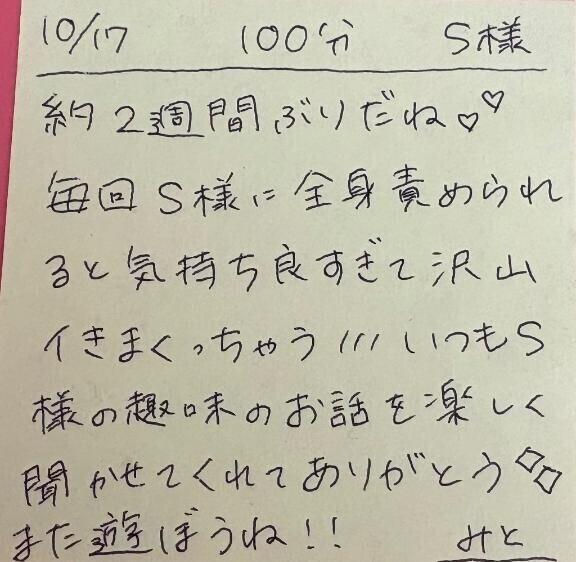 10/17 100分 S様
約2週間ぶりだね♡♡
毎回S様に全身責められ
ると気持ち良すぎて沢山
イきまくっちゃう///いつもS
様の趣味のお話を楽しく
聞かせてくれてありがとう
また遊ぼうね!!
みと